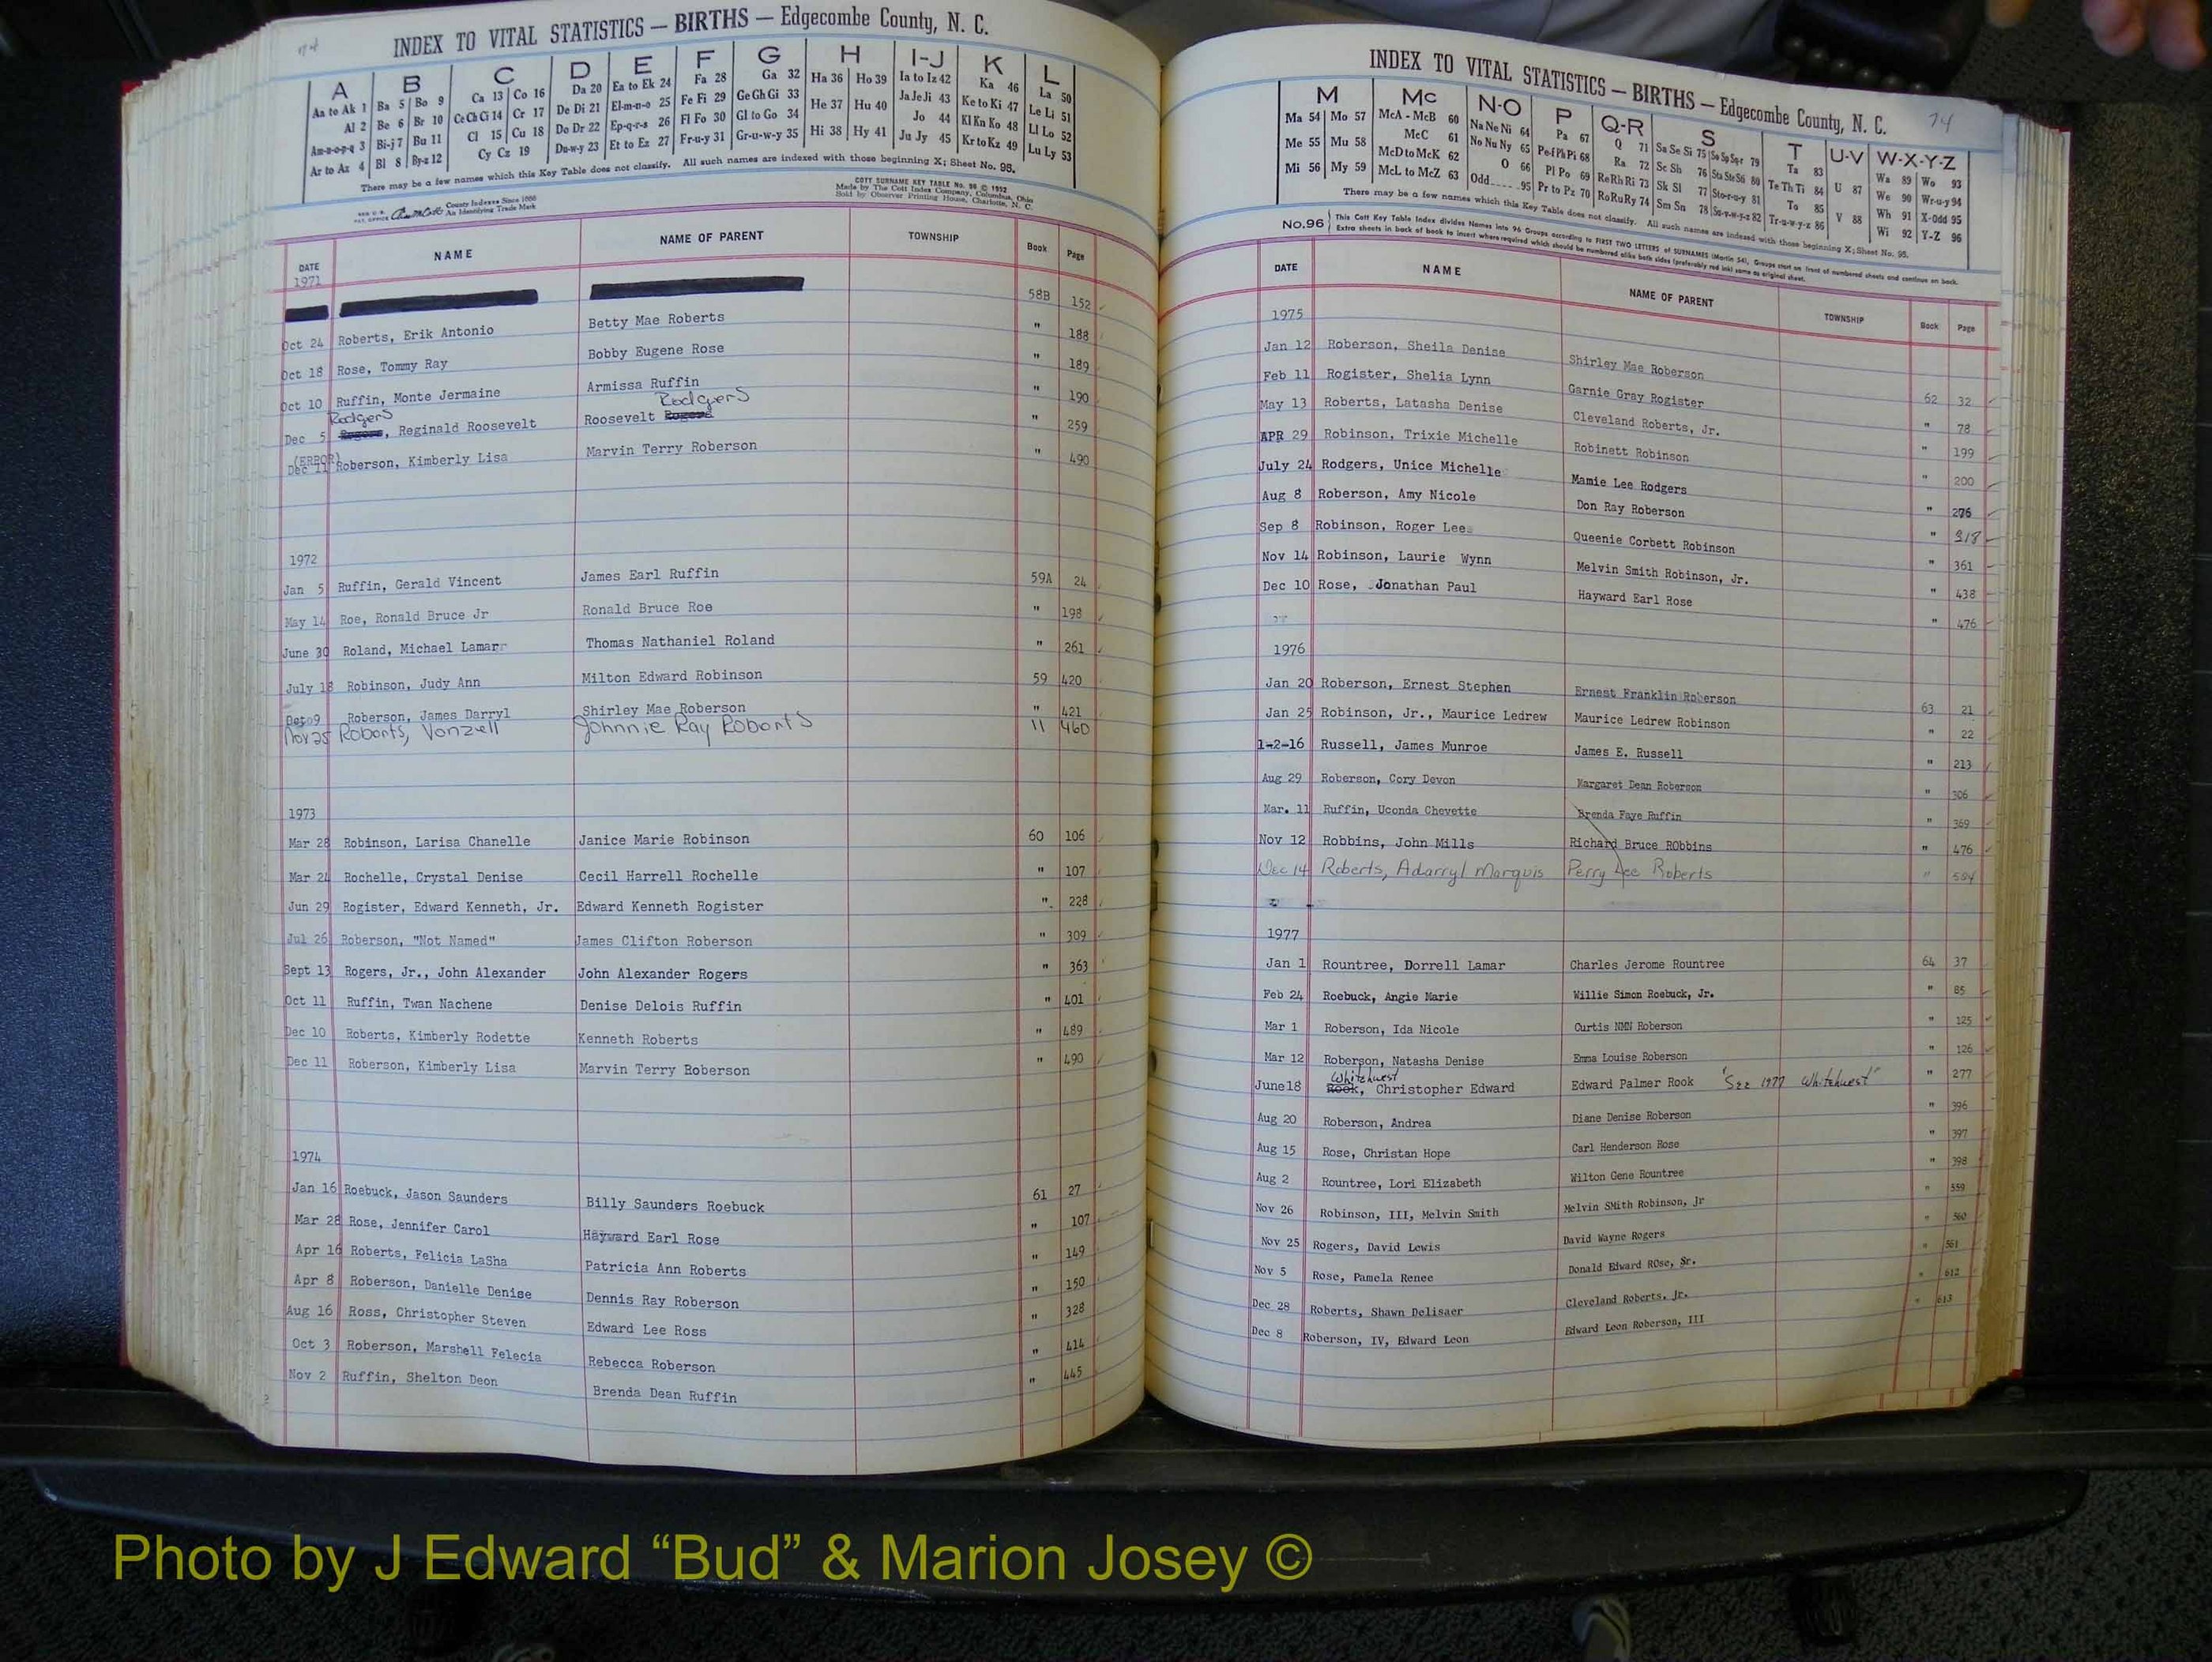 INDEX TO VITAL STATISTICS — BIRTHS — Edgecombe County, N. C.
A B C D E F G H I-J K L
Aa to Ak 1 Ba 5 Bo 9 Ca 13 Co 16 Da 20 Ea to Ek 24 Fa 28 Ga 32 Ha 36 Ho 39 Ia to Iz 42 Ka 46 La 50
Al 2 Be 6 Br 10 Ce Ch Ci 14 Cr 17 De Di 21 El-m-n-o 25 Fe Fi 29 Ge Gh Gi 33 He 37 Hu 40 Ja Je Ji 43 Ke to Ki 47 Le Li 51
Am-n-o-p-q 3 Bi-j 7 Bu 11 Cl 15 Cu 18 Do Dr 22 Ep-q-r-s 26 Fl Fo 30 Gl to Go 34 Hi 38 Hy 41 Jo 44 Kl Kn Ko 48 Ll Lo 52
Ar to Az 4 Bl 8 By-z 12 Cy Cz 19 Du-w-y 23 Et to Ez 27 Fr-u-y 31 Gr-u-w-y 35 Ju Jy 45 Kr to Kz 49 Lu Ly 53
There may be a few names which this Key Table does not classify. All such names are indexed with those beginning X; Sheet No. 95.
County Indexes Since 1888
An Identifying Trade Mark
COTT SURNAME KEY TABLE No. 96 © 1952
Made by The Cott Index Company, Columbus, Ohio
Sold by Observer Printing House, Charlotte, N. C.
DATE NAME NAME OF PARENT TOWNSHIP Book Page
1971
58B 152
Oct 24 Roberts, Erik Antonio Betty Mae Roberts " 188
Oct 18 Rose, Tommy Ray Bobby Eugene Rose " 189
Oct 10 Ruffin, Monte Jermaine Armissa Ruffin " 190
Rodgers Rodgers
Dec 5 Rogers, Reginald Roosevelt Roosevelt Rogers " 259
(ERROR)
Dec 11 Roberson, Kimberly Lisa Marvin Terry Roberson " 490
1972
Jan 5 Ruffin, Gerald Vincent James Earl Ruffin 59A 24
May 14 Roe, Ronald Bruce Jr Ronald Bruce Roe " 198
June 30 Roland, Michael Lamar Thomas Nathaniel Roland " 261
July 18 Robinson, Judy Ann Milton Edward Robinson 59 420
Oct 9 Roberson, James Darryl Shirley Mae Roberson " 421
Nov 25 Roberts, Vonzell Johnnie Ray Roberts 11 460
1973
Mar 28 Robinson, Larisa Chanelle Janice Marie Robinson 60 106
Mar 24 Rochelle, Crystal Denise Cecil Harrell Rochelle " 107
Jun 29 Rogister, Edward Kenneth, Jr. Edward Kenneth Rogister " 228
Jul 26 Roberson, "Not Named" James Clifton Roberson " 309
Sept 13 Rogers, Jr., John Alexander John Alexander Rogers " 363
Oct 11 Ruffin, Twan Nachene Denise Delois Ruffin " 401
Dec 10 Roberts, Kimberly Rodette Kenneth Roberts " 489
Dec 11 Roberson, Kimberly Lisa Marvin Terry Roberson " 490
1974
Jan 16 Roebuck, Jason Saunders Billy Saunders Roebuck 61 27
Mar 28 Rose, Jennifer Carol Hayward Earl Rose " 107
Apr 16 Roberts, Felicia LaSha Patricia Ann Roberts " 149
Apr 8 Roberson, Danielle Denise Dennis Ray Roberson " 150
Aug 16 Ross, Christopher Steven Edward Lee Ross " 328
Oct 3 Roberson, Marshell Felecia Rebecca Roberson " 414
Nov 2 Ruffin, Shelton Deon Brenda Dean Ruffin " 445
INDEX TO VITAL STATISTICS — BIRTHS — Edgecombe County, N. C. 74
M Mc N-O P Q-R S T U-V W-X-Y-Z
Ma 54 Mo 57 McA - McB 60 Na Ne Ni 64 Pa 67 Q 71 Sa Se Si 75 So Sp Sq-r 79 Ta 83 U 87 Wa 89 Wo 93
Me 55 Mu 58 McC 61 No Nu Ny 65 Pe-f Ph Pi 68 Ra 72 Sc Sh 76 Sta Ste Sti 80 Te Th Ti 84 V 88 We 90 Wr-u-y 94
Mi 56 My 59 McD to McK 62 O 66 Pl Po 69 Re Rh Ri 73 Sk Sl 77 Sto-r-u-y 81 To 85 Wh 91 X-Odd 95
McL to McZ 63 Odd 95 Pr to Pz 70 Ro Ru Ry 74 Sm Sn 78 Su-v-w-y-z 82 Tr-u-w-y-z 86 Wi 92 Y-Z 96
There may be a few names which this Key Table does not classify. All such names are indexed with those beginning X; Sheet No. 95.
No. 96 This Cott Key Table Index divides Names into 96 Groups according to FIRST TWO LETTERS of SURNAMES (Martin 54). Groups start on front of numbered sheets and continue on back.
Extra sheets in back of book to insert where required which should be numbered alike both sides (preferably red ink) same as original sheet.
DATE NAME NAME OF PARENT TOWNSHIP Book Page
1975
Jan 12 Roberson, Sheila Denise Shirley Mae Roberson 62 32
Feb 11 Rogister, Shelia Lynn Garnie Gray Rogister " 78
May 13 Roberts, Latasha Denise Cleveland Roberts, Jr. " 199
APR 29 Robinson, Trixie Michelle Robinett Robinson " 200
July 24 Rodgers, Unice Michelle Mamie Lee Rodgers " 276
Aug 8 Roberson, Amy Nicole Don Ray Roberson " 318
Sep 8 Robinson, Roger Lee Queenie Corbett Robinson " 361
Nov 14 Robinson, Laurie Wynn Melvin Smith Robinson, Jr. " 438
Dec 10 Rose, Jonathan Paul Hayward Earl Rose " 476
1976
Jan 20 Roberson, Ernest Stephen Ernest Franklin Roberson 63 21
Jan 25 Robinson, Jr., Maurice Ledrew Maurice Ledrew Robinson " 22
1-2-16 Russell, James Munroe James E. Russell " 213
Aug 29 Roberson, Cory Devon Margaret Dean Roberson " 306
Mar. 11 Ruffin, Uconda Chevette Brenda Faye Ruffin " 369
Nov 12 Robbins, John Mills Richard Bruce RObbins " 476
Dec 14 Roberts, Adarryl Marquis Perry Lee Roberts "
1977
Jan 1 Rountree, Dorrell Lamar Charles Jerome Rountree 64 37
Feb 24 Roebuck, Angie Marie Willie Simon Roebuck, Jr. " 85
Mar 1 Roberson, Ida Nicole Curtis NMN Roberson " 125
Mar 12 Roberson, Natasha Denise Emma Louise Roberson " 126
Whitehurst
June 18 Rook, Christopher Edward Edward Palmer Rook "See 1977 Whitehurst" " 277
Aug 20 Roberson, Andrea Diane Denise Roberson " 396
Aug 15 Rose, Christan Hope Carl Henderson Rose " 397
Aug 2 Rountree, Lori Elizabeth Wilton Gene Rountree " 398
Nov 26 Robinson, III, Melvin Smith Melvin SMith Robinson, Jr " 559
Nov 25 Rogers, David Lewis David Wayne Rogers " 560
Nov 5 Rose, Pamela Renee Donald Edward ROse, Sr. " 561
Dec 28 Roberts, Shawn Delisaer Cleveland Roberts, Jr. " 612
Dec 8 Roberson, IV, Edward Leon Edward Leon Roberson, III " 613
Photo by J Edward “Bud” & Marion Josey ©